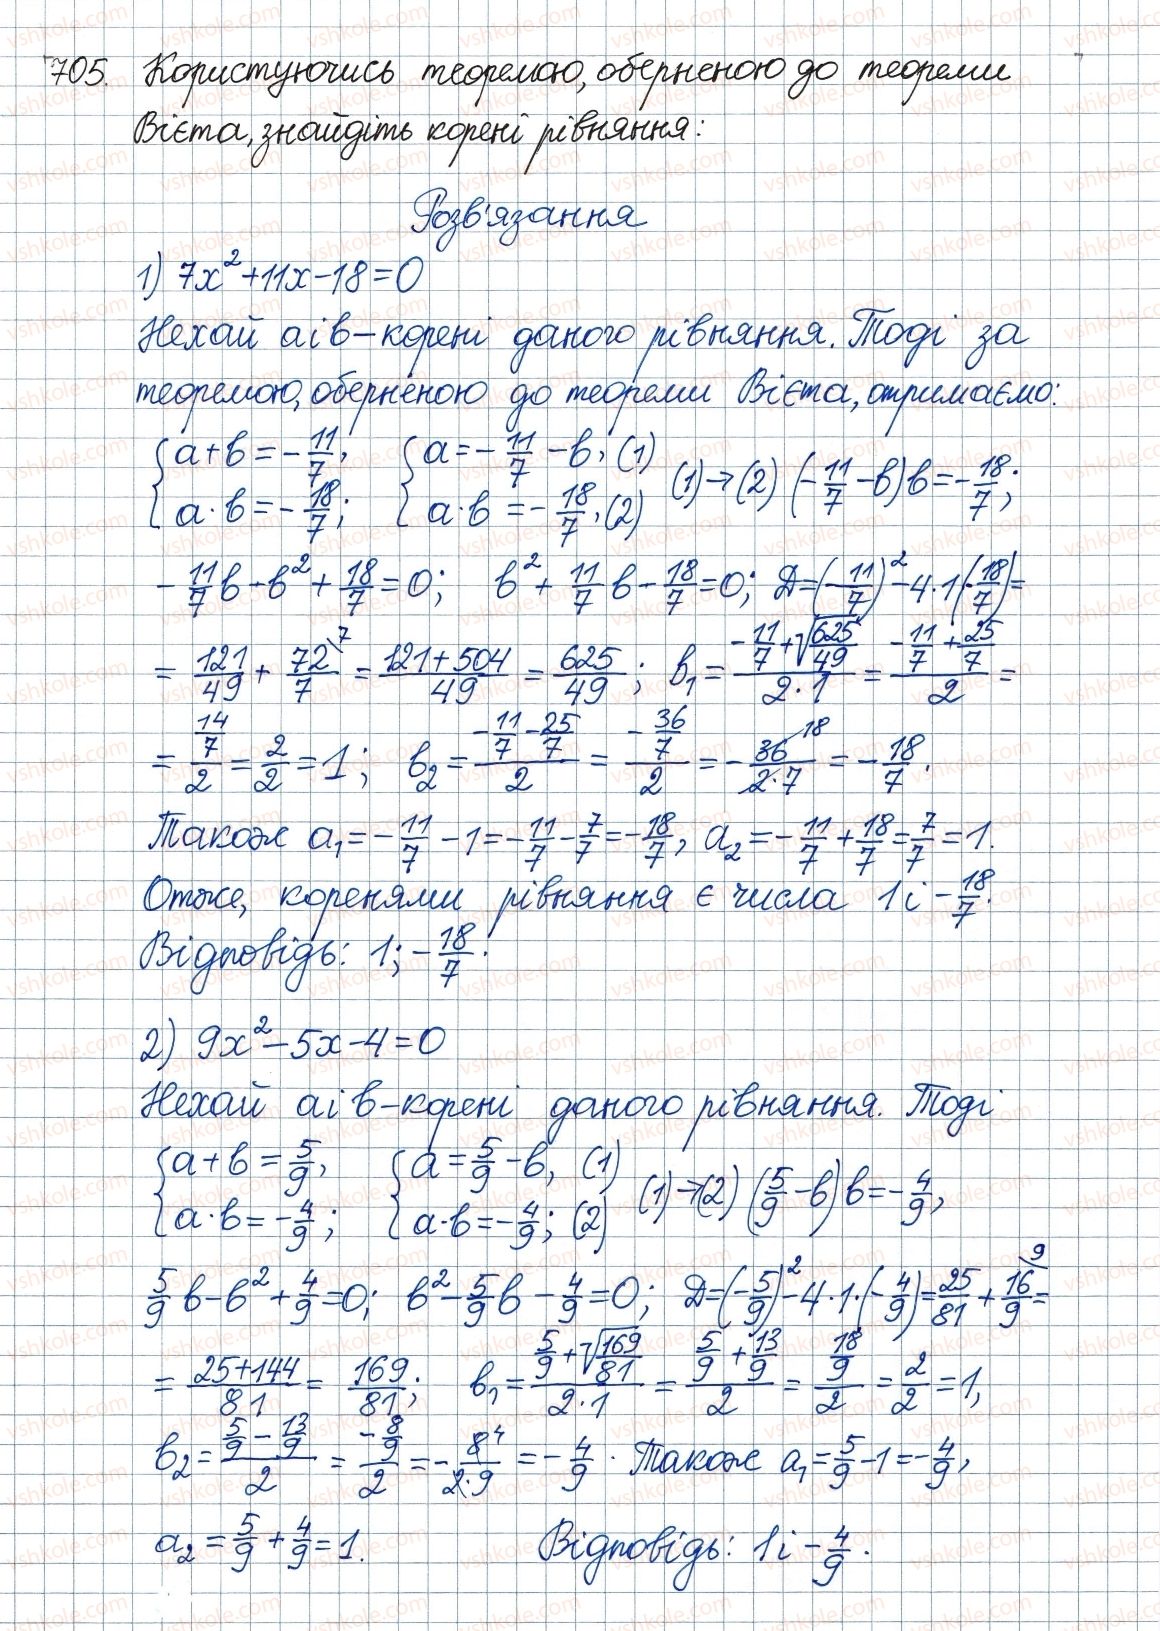 705. Користуючись теоремою, оберненою до теореми
Вієта, знайдіть корені рівняння:
Розв'язання
1) 7x² + 11x - 18 = 0
Нехай a і b – корені даного рівняння. Тоді за
теоремою, оберненою до теореми Вієта, отримаємо:
{a + b = -11/7, a·b = -18/7; {a = -11/7 - b, (1) a·b = -18/7, (2) (1)→(2) (-11/7 - b)b = -18/7;
-11/7 b - b² + 18/7 = 0; b² + 11/7 b - 18/7 = 0; Д = (-11/7)² - 4·1(-18/7) =
= 121/49 + 72/7 ^7 = (121+504)/49 = 625/49; b₁ = (-11/7 + √(625/49))/(2·1) = (-11/7 + 25/7)/2 =
= (14/7)/2 = 2/2 = 1; b₂ = (-11/7 - 25/7)/2 = (-36/7)/2 = -36 ^18/(2·7) = -18/7.
Також a₁ = -11/7 - 1 = -11/7 - 7/7 = -18/7, a₂ = -11/7 + 18/7 = 7/7 = 1.
Отже, коренями рівняння є числа 1 і -18/7.
Відповідь: 1; -18/7.
2) 9x² - 5x - 4 = 0
Нехай a і b – корені даного рівняння. Тоді
{a + b = 5/9, a·b = -4/9; {a = 5/9 - b, (1) a·b = -4/9; (2) (1)→(2) (5/9 - b)b = -4/9,
5/9 b - b² + 4/9 = 0; b² - 5/9 b - 4/9 = 0; Д = (-5/9)² - 4·1·(-4/9) = 25/81 + 16/9 ^9 =
= (25+144)/81 = 169/81; b₁ = (5/9 + √(169/81))/(2·1) = (5/9 + 13/9)/2 = (18/9)/2 = 2/2 = 1,
b₂ = (5/9 - 13/9)/2 = (-8/9)/2 = -8 ^4/(2·9) = -4/9. Також a₁ = 5/9 - 1 = -4/9,
a₂ = 5/9 + 4/9 = 1. Відповідь: 1 і -4/9.
vshkole.com